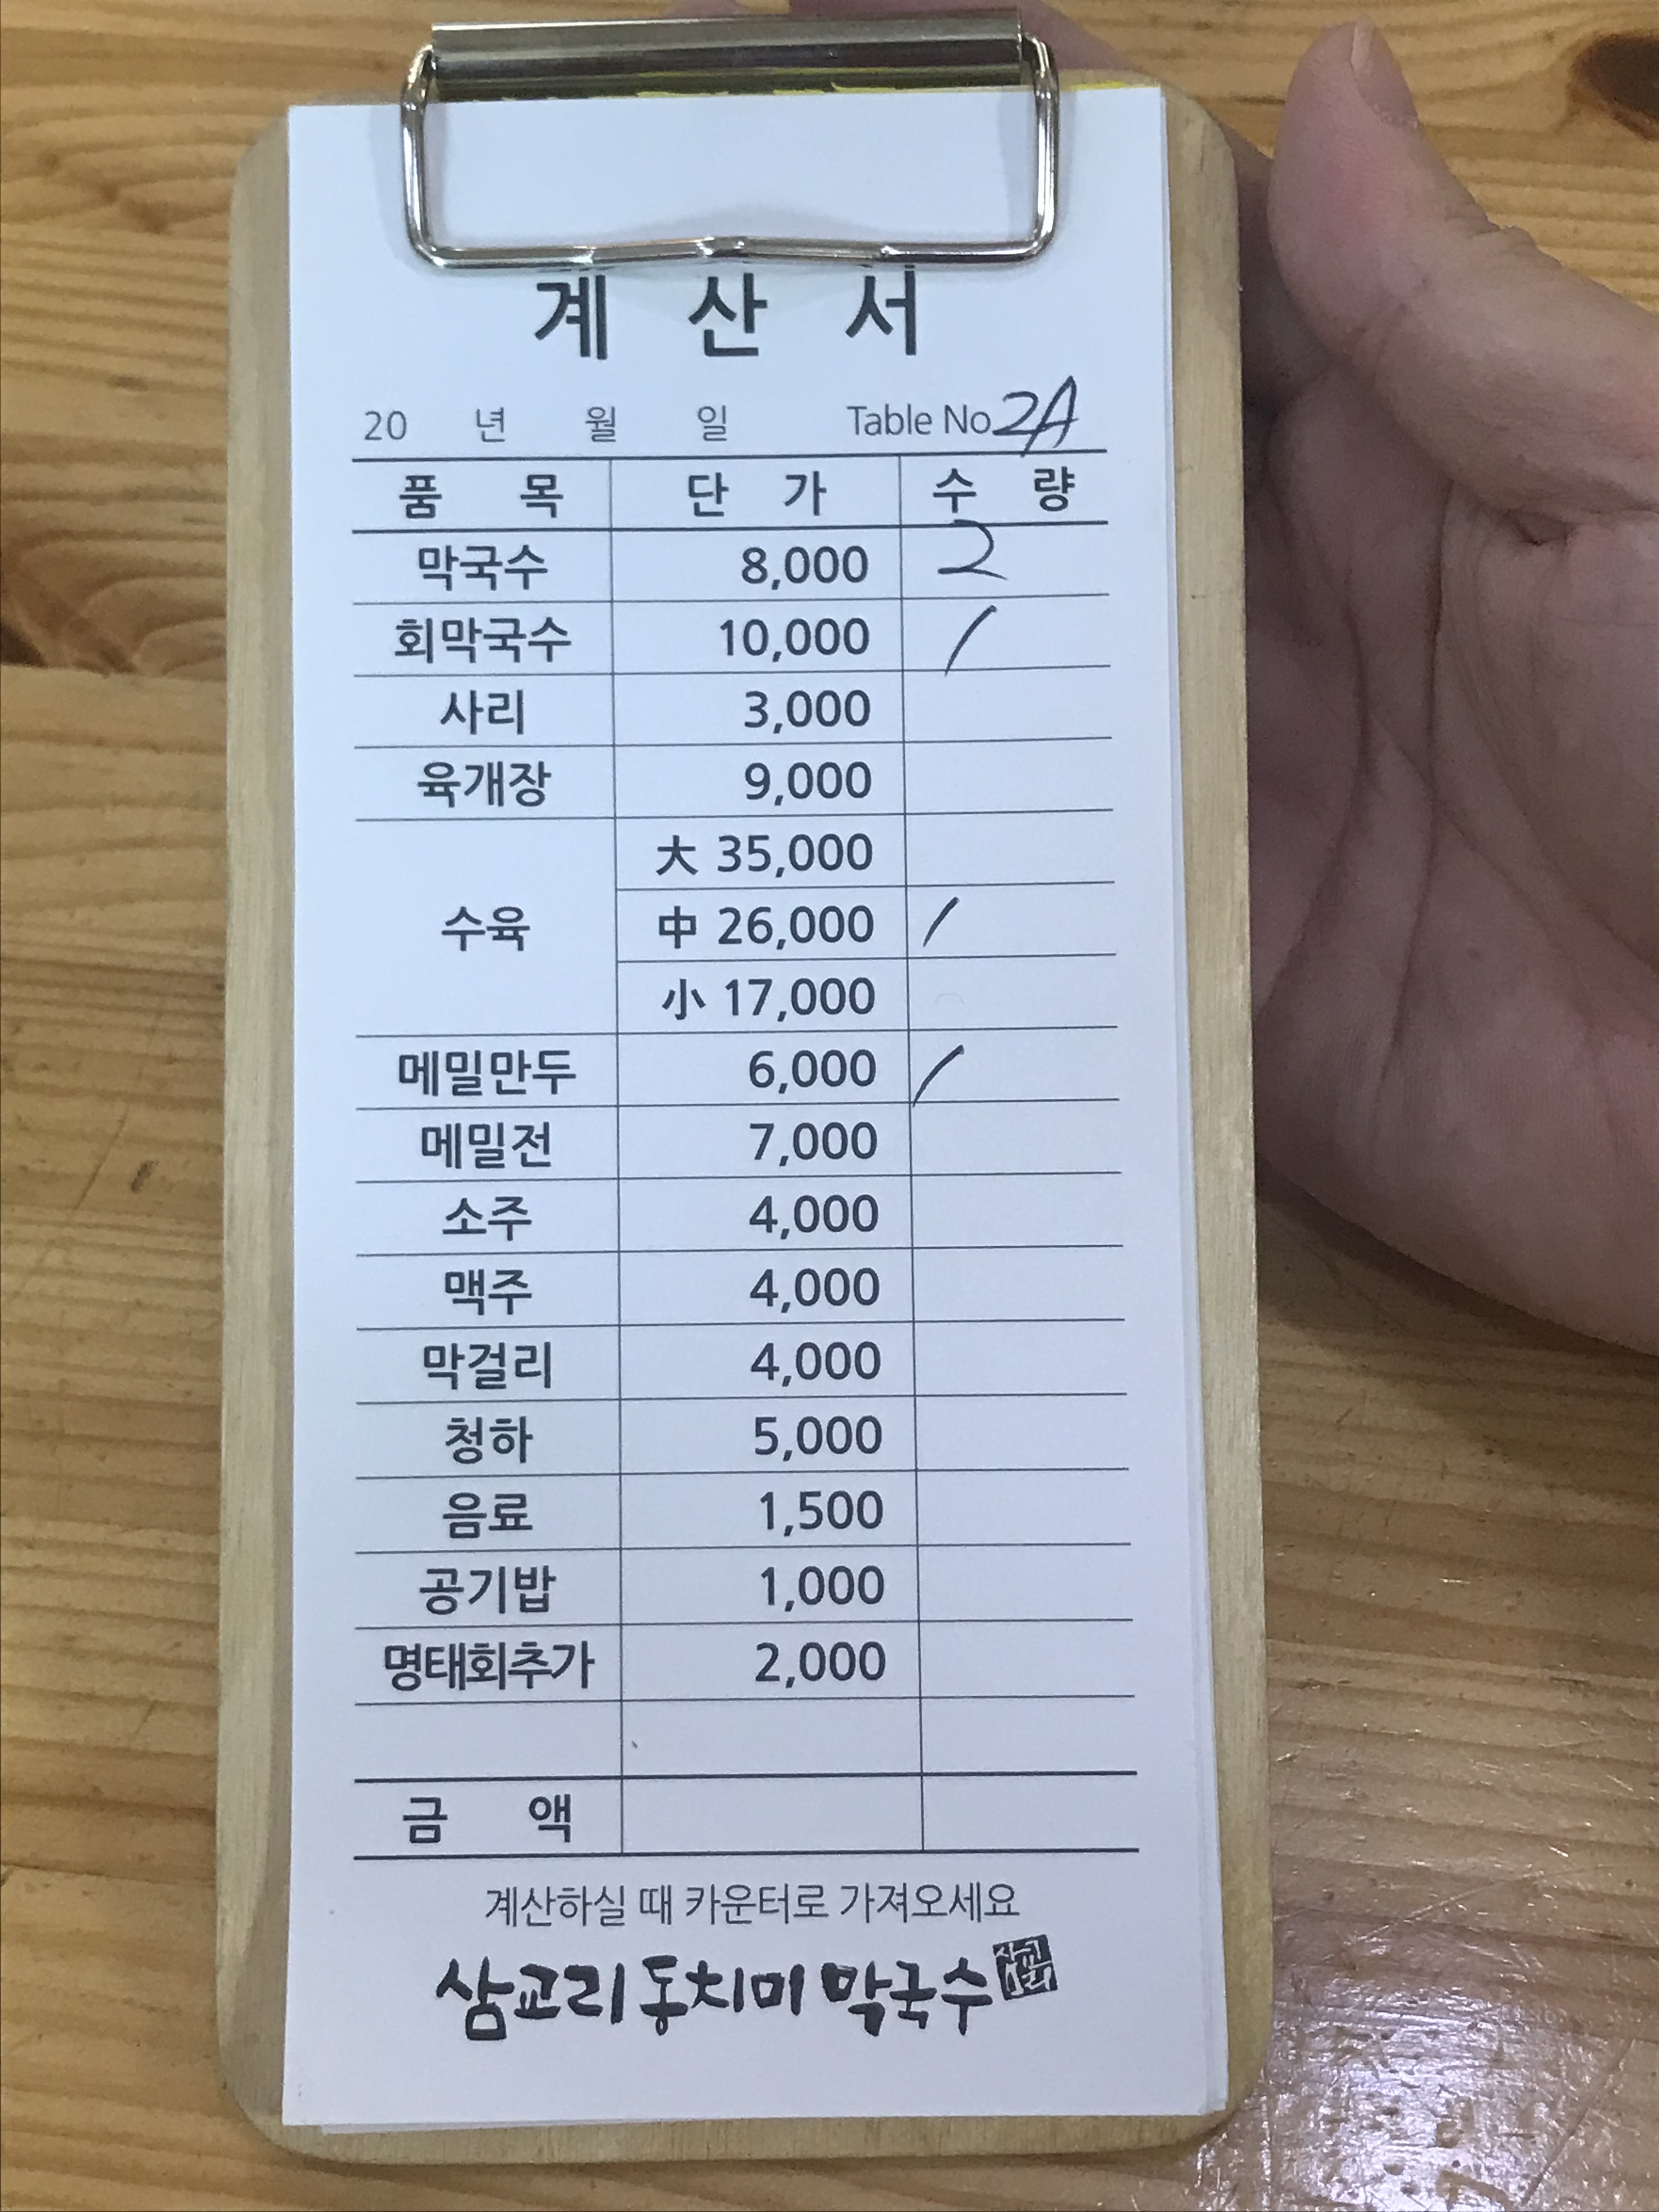 계 산 서
20 년 월 일 Table No 2A
품 목 단 가 수 량
막국수 8,000 2
회막국수 10,000 /
사리 3,000
육개장 9,000
大 35,000
수육 中 26,000 /
小 17,000
메밀만두 6,000 /
메밀전 7,000
소주 4,000
맥주 4,000
막걸리 4,000
청하 5,000
음료 1,500
공기밥 1,000
명태회추가 2,000
금 액
계산하실 때 카운터로 가져오세요
삼교리 동치미 막국수 삼교리